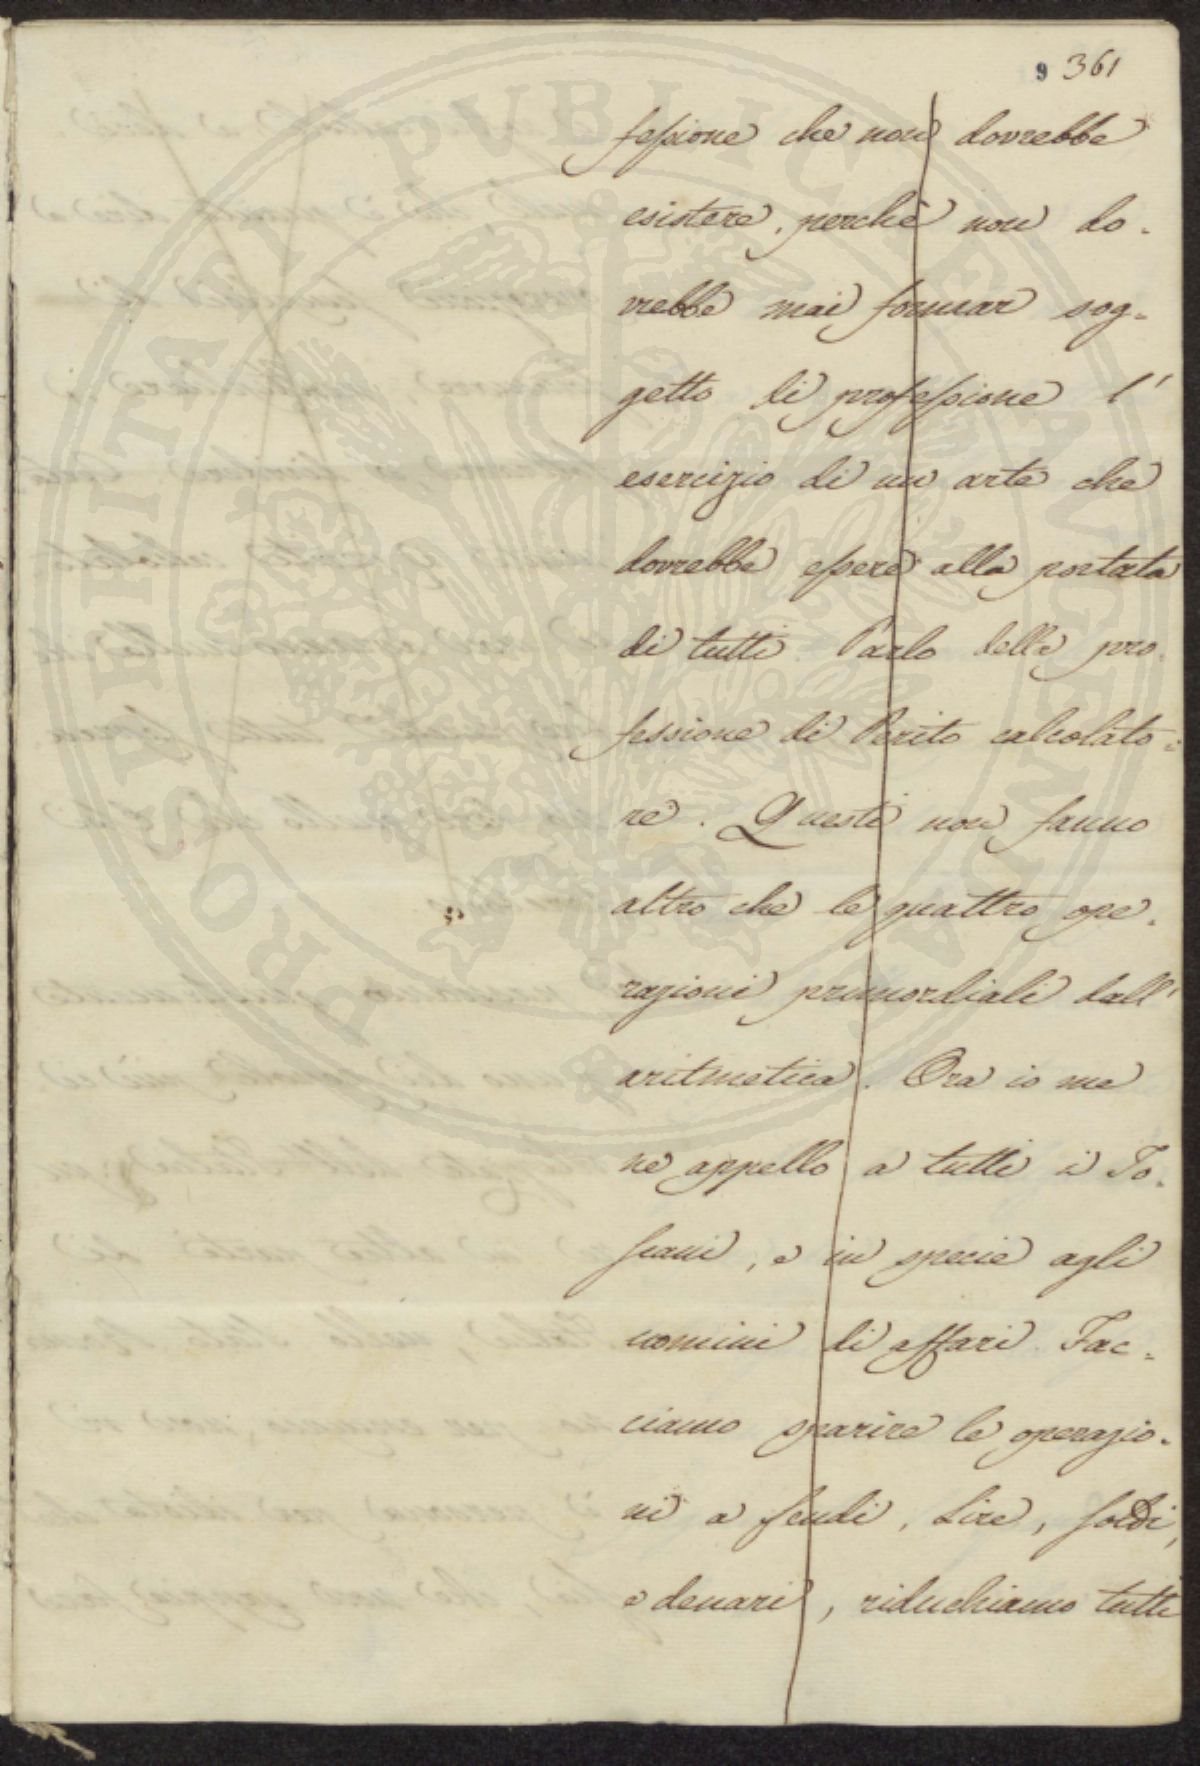 9 361
fessione che non dovrebbe
esistere, perchè non do-
vrebbe mai formar sog-
getto di professione l'
esercizio di un arte che
dovrebbe essere alla portata
di tutti. Parlo della pro-
fessione di Perito calcolato=
re. Questi non fanno
altro che le quattro ope-
razioni primordiali dall'
aritmetica. Ora io me
ne appello a tutti i To-
scani, e in specie agli
uomini di affari. Fac-
ciamo sparire le operazio-
ni a scudi, Lire, soldi,
e denari, riduchiamo tutti
PROSPERITATI PUBLICAE AUGENDAE